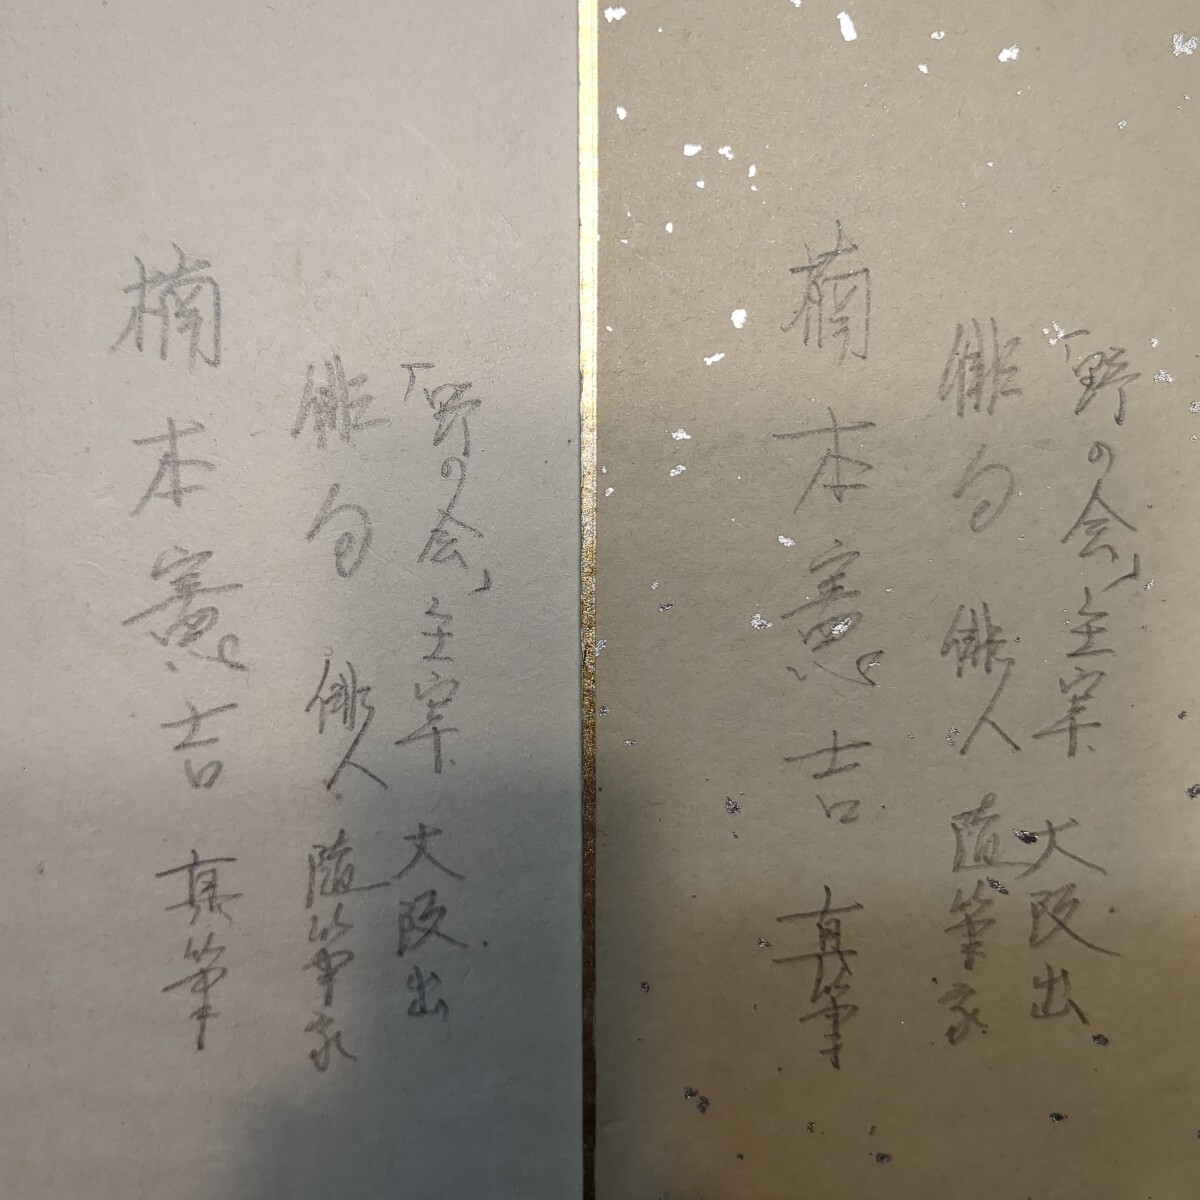 「野の会」主宰 大阪出
俳句 俳人 随筆家
楠本憲吉 真筆
「野の会」主宰 大阪出
俳句 俳人 随筆家
楠本憲吉 真筆